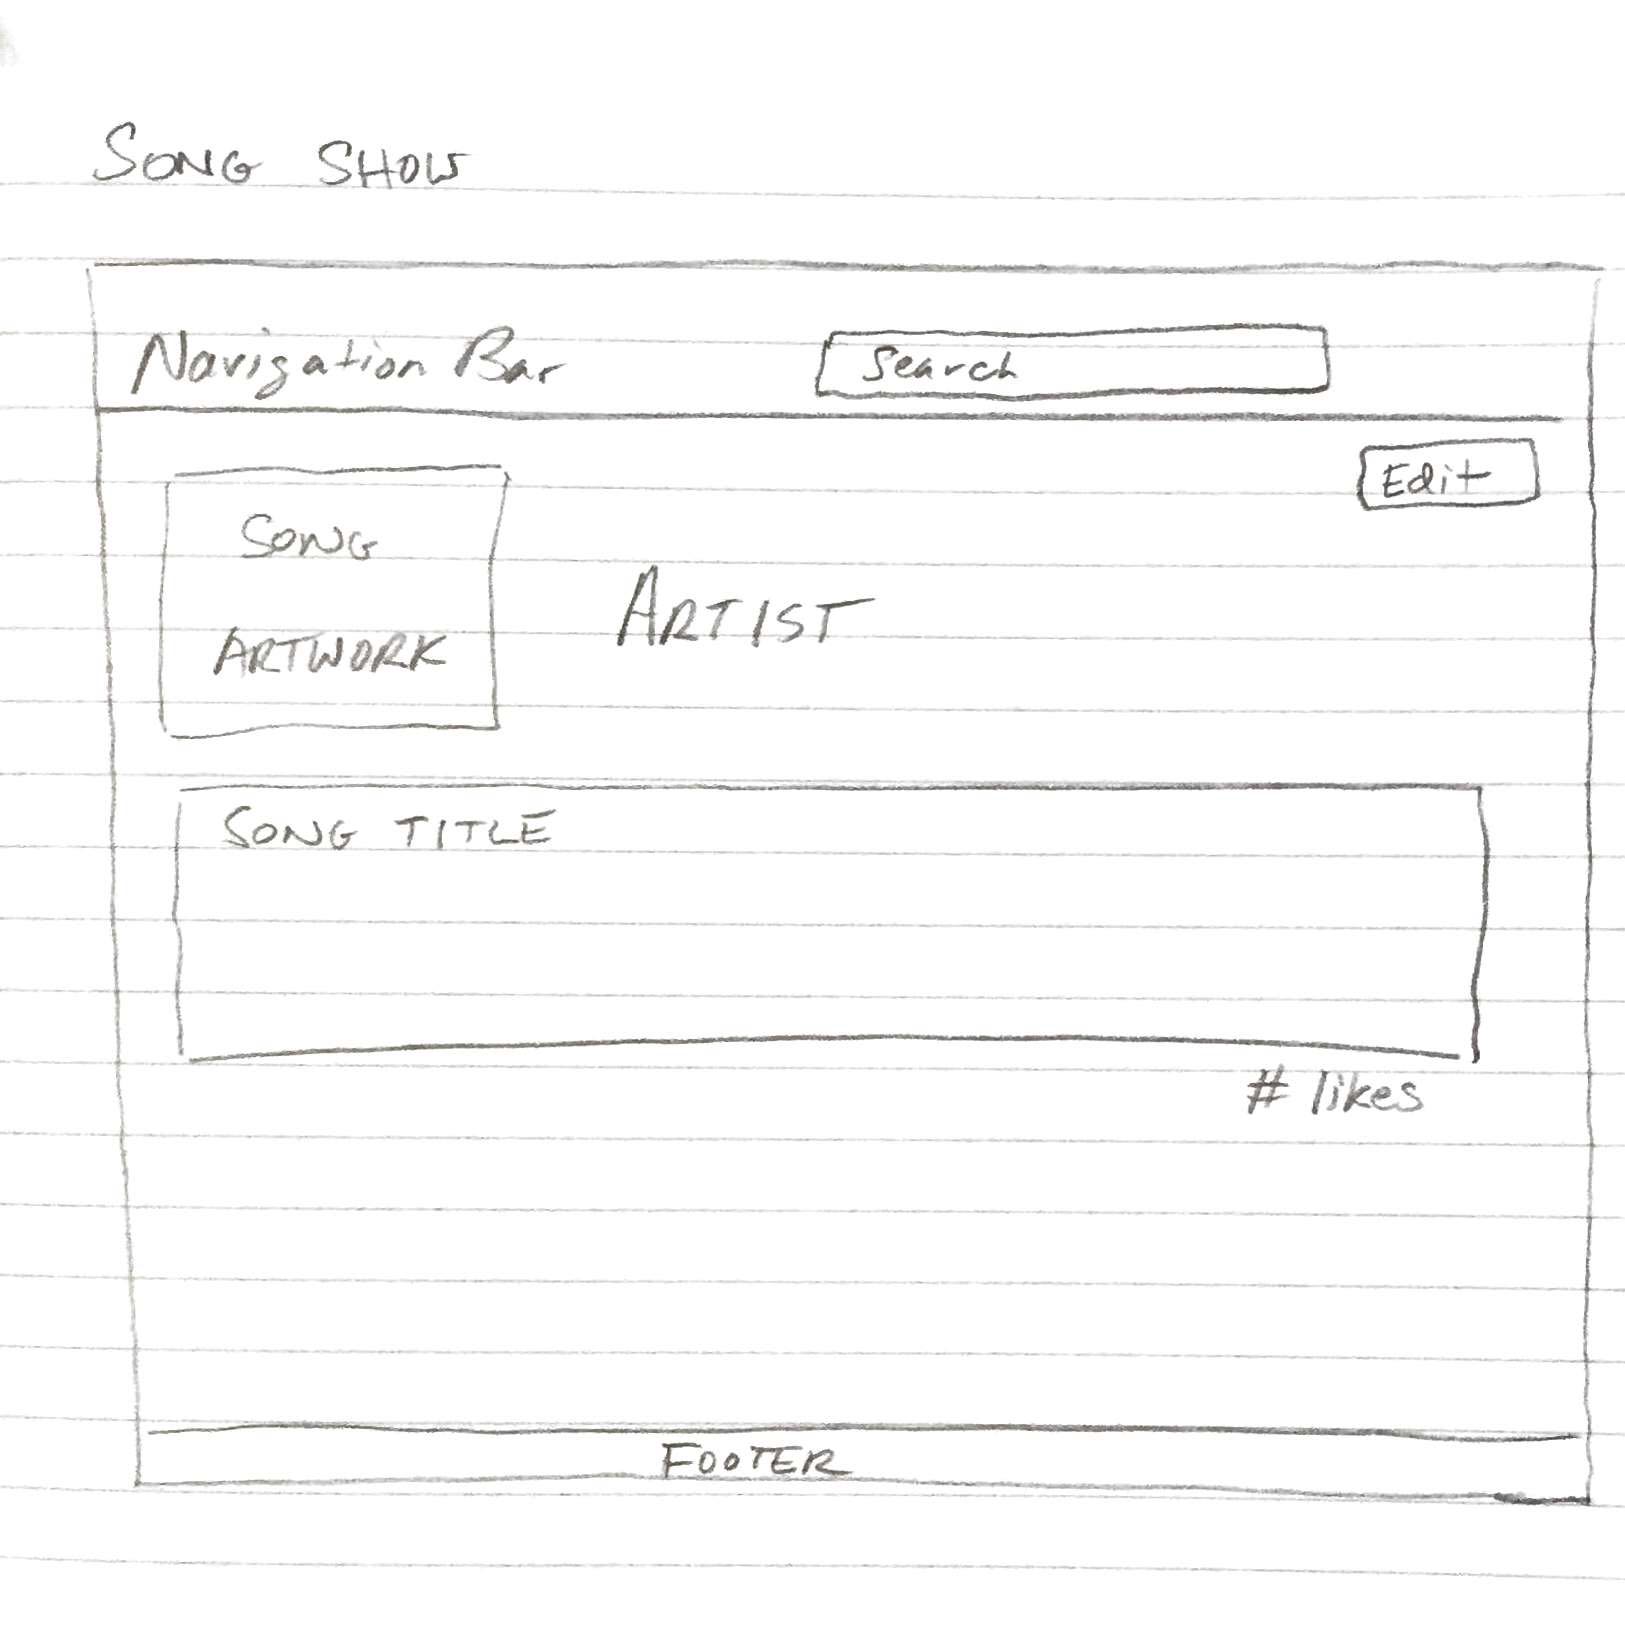 SONG SHOW
Navigation Bar
Search
Edit
SONG
ARTWORK
ARTIST
SONG TITLE
# likes
FOOTER